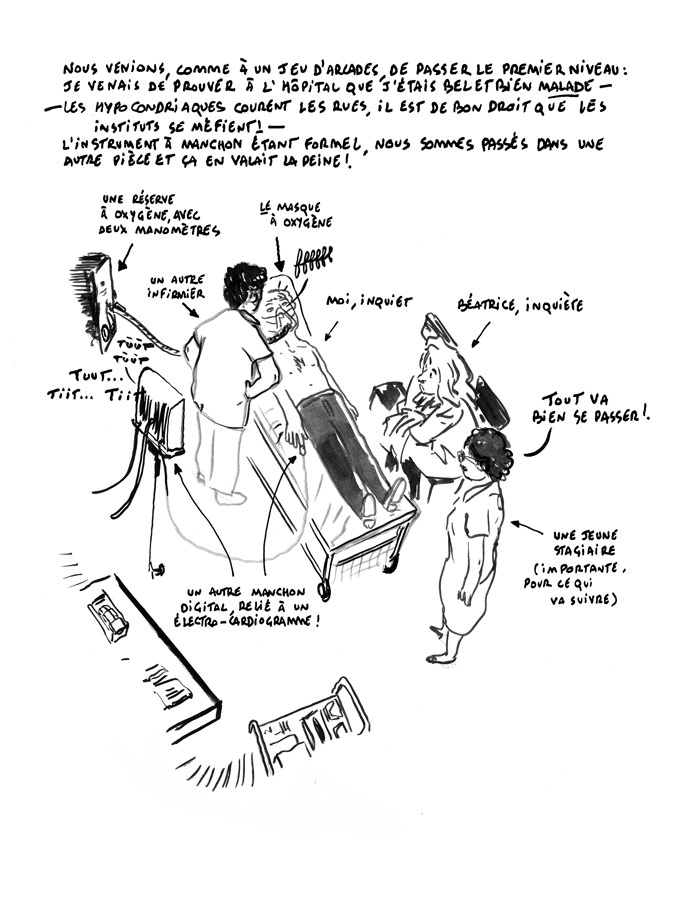 NOUS VENIONS, COMME À UN JEU D'ARCADES, DE PASSER LE PREMIER NIVEAU :
JE VENAIS DE PROUVER À L'HÔPITAL QUE J'ÉTAIS BEL ET BIEN MALADE —
— LES HYPOCONDRIAQUES COURENT LES RUES, IL EST DE BON DROIT QUE LES
INSTITUTS SE MÉFIENT ! —
L'INSTRUMENT À MANCHON ÉTANT FORMEL, NOUS SOMMES PASSÉS DANS UNE
AUTRE PIÈCE ET ÇA EN VALAIT LA PEINE !
UNE RÉSERVE
À OXYGÈNE, AVEC
DEUX MANOMÈTRES
LE MASQUE
À OXYGÈNE
ffffff
UN AUTRE
INFIRMIER
MOI, INQUIET
BÉATRICE, INQUIÈTE
TÙÙT
TÙÙT
TUUT...
TIIT... TIIT
TOUT VA
BIEN SE PASSER !
UNE JEUNE
STAGIAIRE
(IMPORTANTE,
POUR CE QUI
VA SUIVRE)
UN AUTRE MANCHON
DIGITAL, RELIÉ À UN
ÉLECTRO-CARDIOGRAMME !